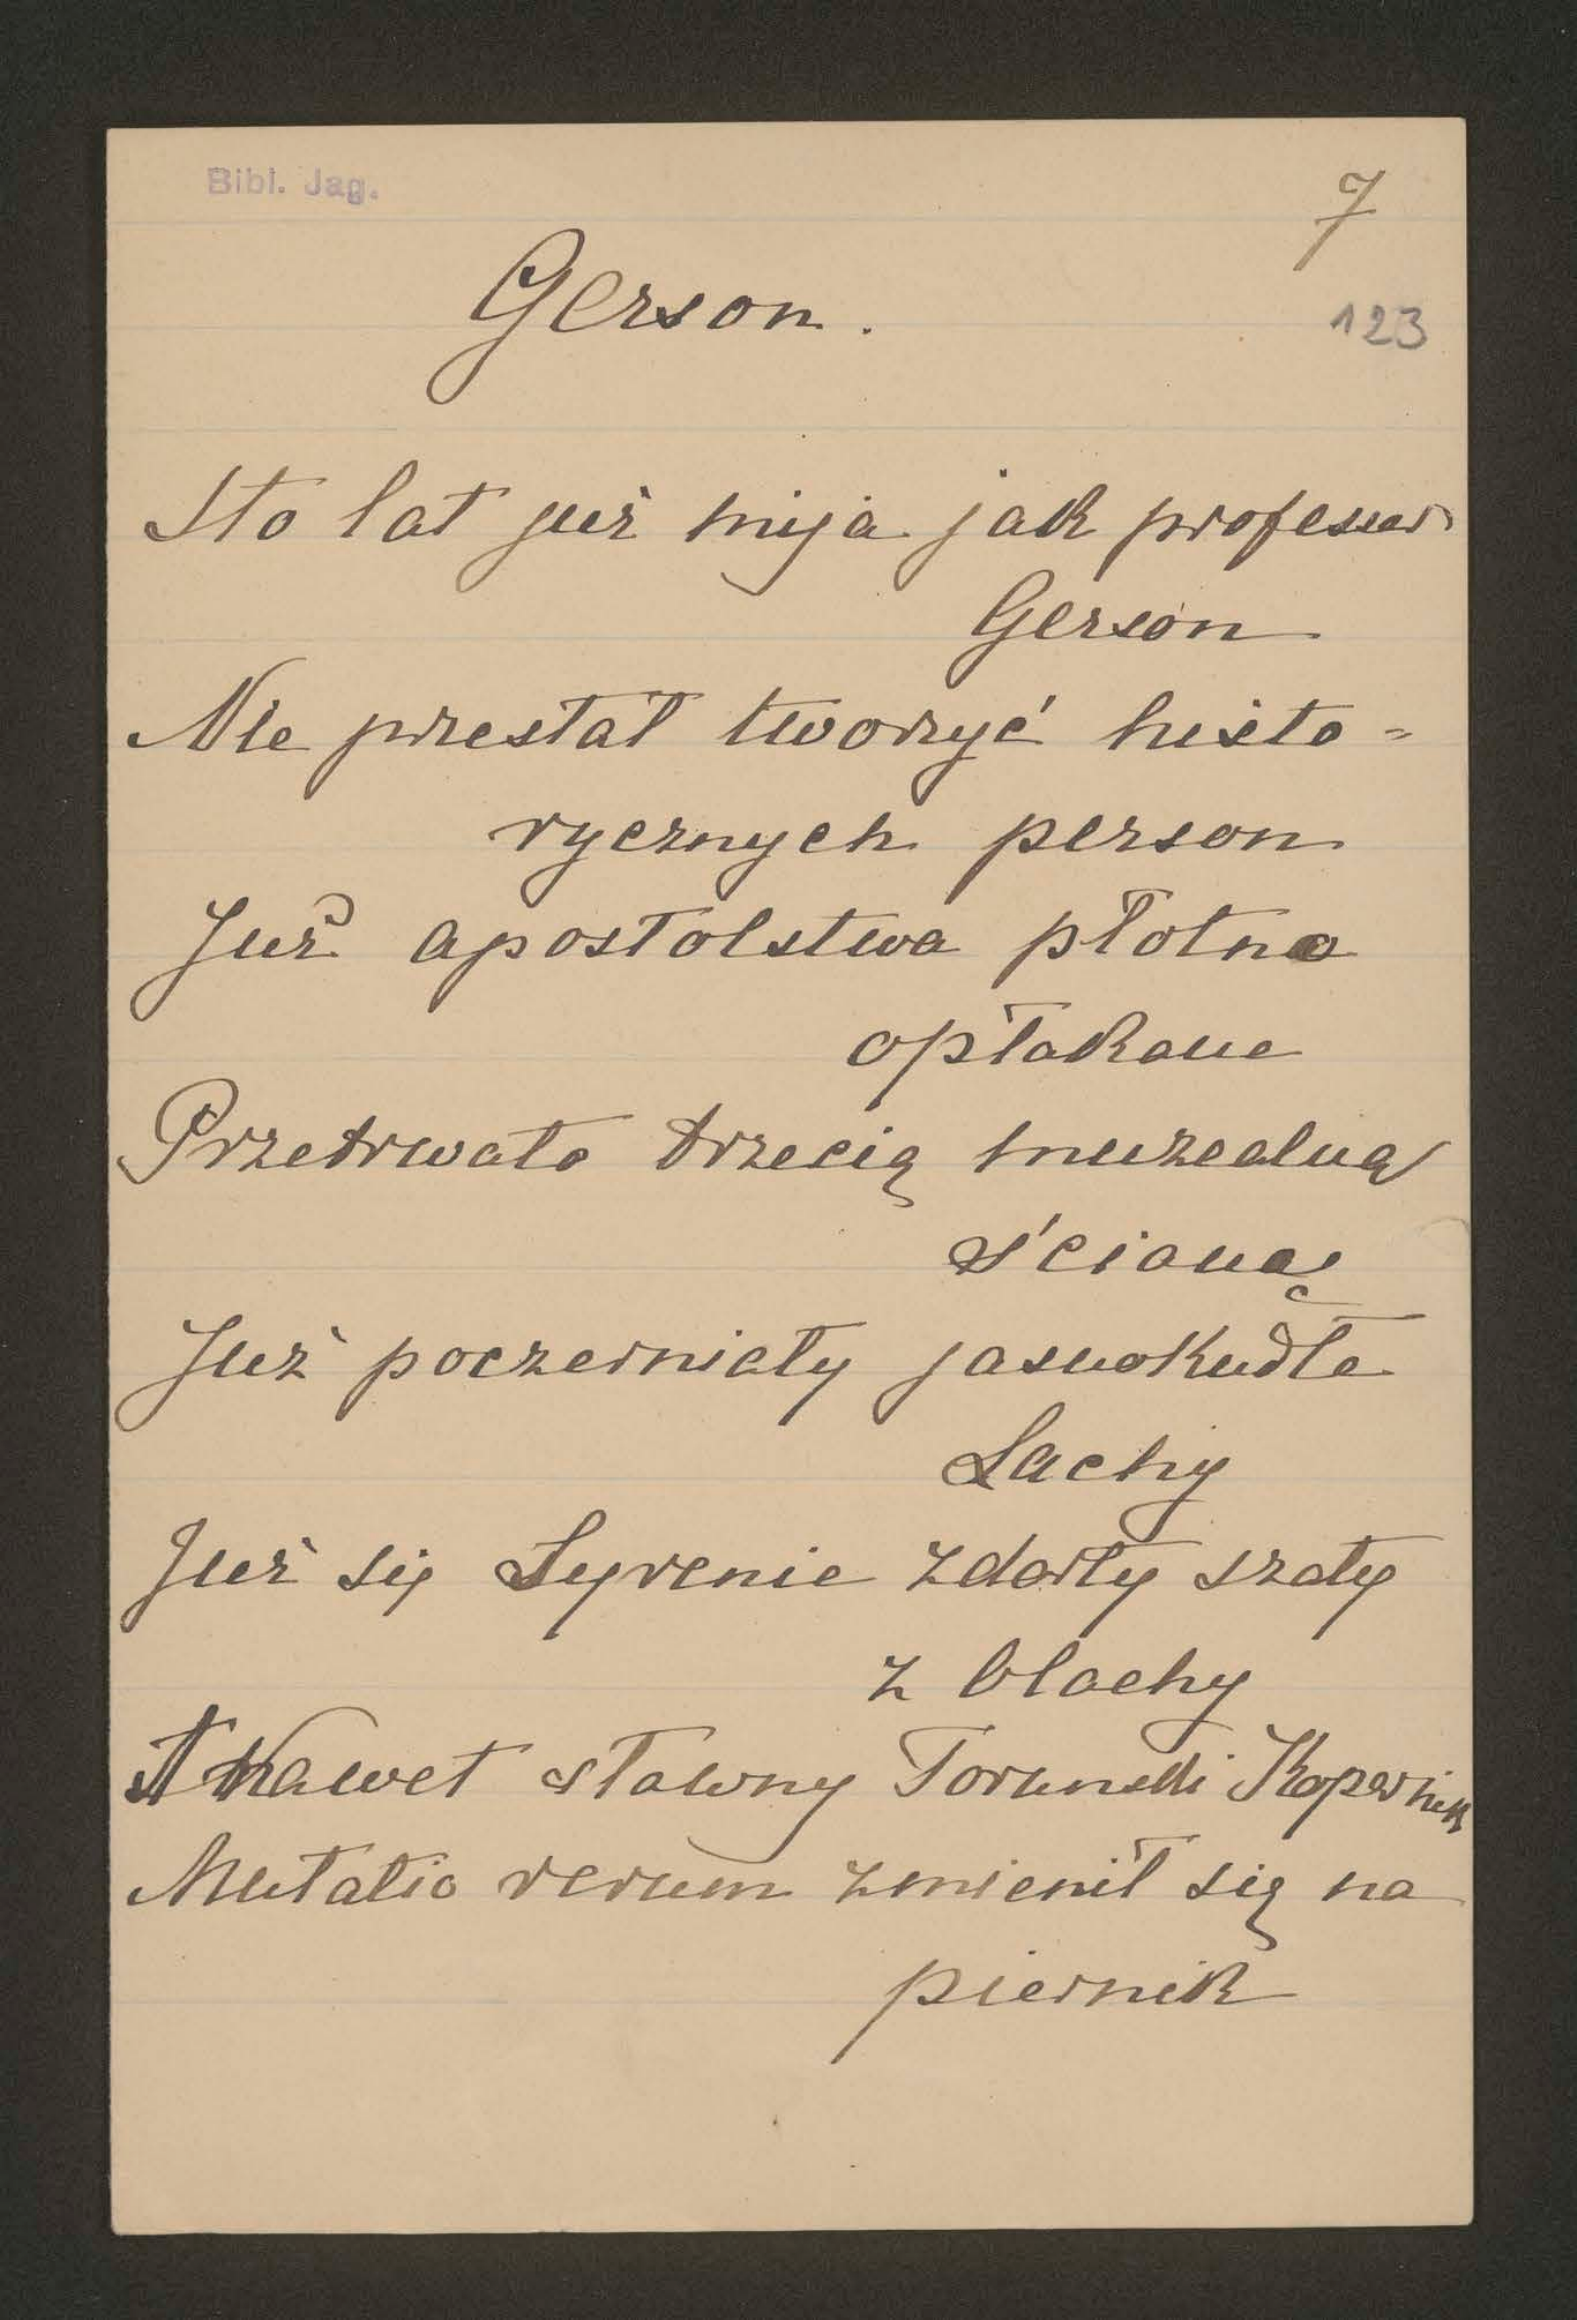 Bibl. Jag.
7
Gerson.
123
Sto lat już mija jak professor
Gerson
Nie przestał tworzyć histo=
rycznych person
Już apostolstwa płotno
opłakane
Przetrwało trzecią muzealną
ścianę
Już poczerniały jasnokudłe
Lachy
Już się Syrenie zdarły szaty
z blachy
A nawet sławny Torunski Kopernik
Mutatio rerum zmienił się na
piernik